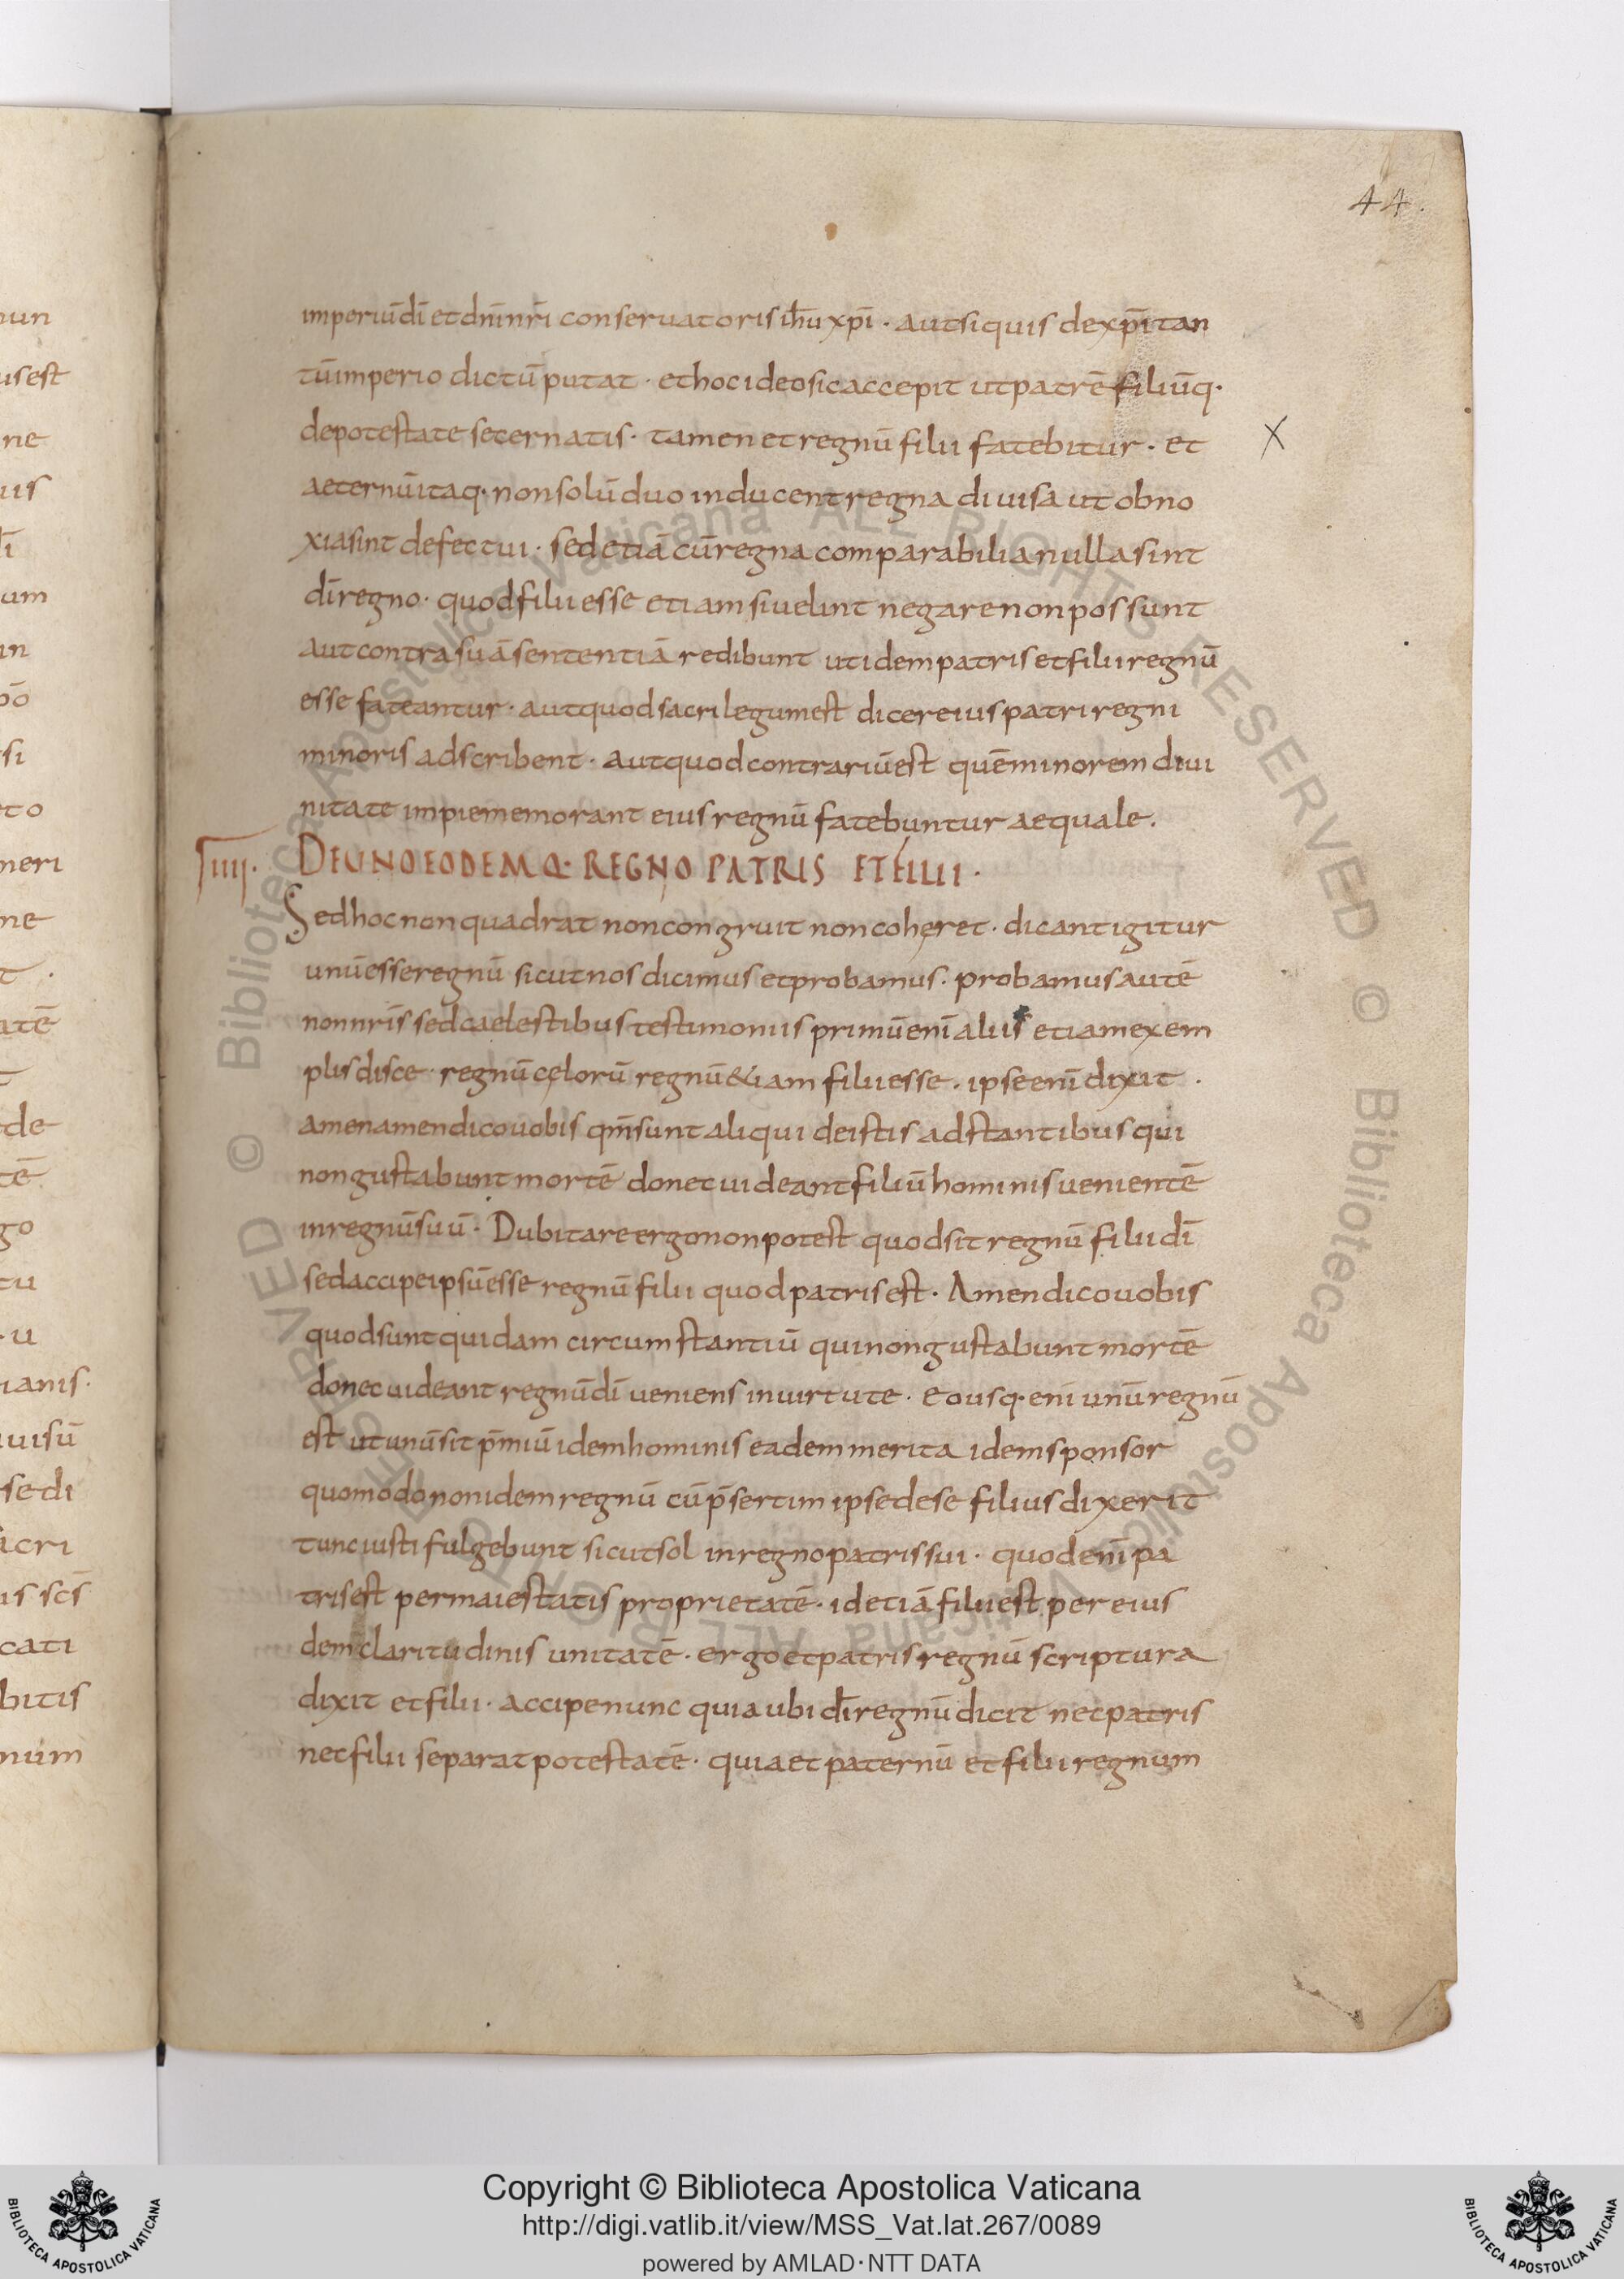 44.
imperiū dī et dn̄i nr̄i conseruatoris ih̄u xp̄i · aut si quis de xp̄i tan
tū imperio dictū putat · et hoc ideo sic accepit ut patrē filiūq·
de potestate secernatis · tamen et regnū filii fatebitur · et
aeternū itaq· non solū duo inducent regna diuisa ut obno
xia sint defectui · sed etiā cū regna comparabilia nulla sint
dī regno · quod filii esse etiam si uelint negare non possunt
aut contra suā sententiā redibunt ut idem patris et filii regnū
esse fateantur · aut quod sacrilegum est dicere ius patri regni
minoris adscribent · aut quod contrariū est quē minorem diui
nitate impie memorant eius regnū fatebuntur aequale .
IIII. DE UNO EODEMQ· REGNO PATRIS ET FILII ·
Sed hoc non quadrat non congruit non coheret · dicant igitur
unū esse regnū sicut nos dicimus et probamus · probamus autē
non nr̄is sed caelestibus testimoniis primū enī aliis etiam exem
plis disce · regnū cęlorū regnū &iam filii esse · ipse enī dixit ·
amen amen dico uobis qm̄ sunt aliqui de istis adstantibus qui
non gustabunt mortē donec uideant filiū hominis uenientē
in regnū suū · Dubitare ergo non potest quod sit regnū filii dī
sed accipe ipsū esse regnū filii quod patris est · Amen dico uobis
quod sunt quidam circumstantiū qui non gustabunt mortē
donec uideant regnū dī ueniens in uirtute · Eousq· enī unū regnū
est ut unū sit p̄miū idem hominis eadem merita idem sponsor
quomodo non idem regnū cū p̄sertim ipse de se filius dixerit
tunc iusti fulgebunt sicut sol in regno patris sui · quod enī pa
tris est per maiestatis proprietatē · id etiā filii est per eius
dem claritudinis unitatē · ergo et patris regnū scriptura
dixit et filii · accipe nunc quia ubi dī regnū dicit nec patris
nec filii separat potestatē · quia et paternū et filii regnum
Copyright © Biblioteca Apostolica Vaticana
http://digi.vatlib.it/view/MSS_Vat.lat.267/0089
powered by AMLAD·NTT DATA